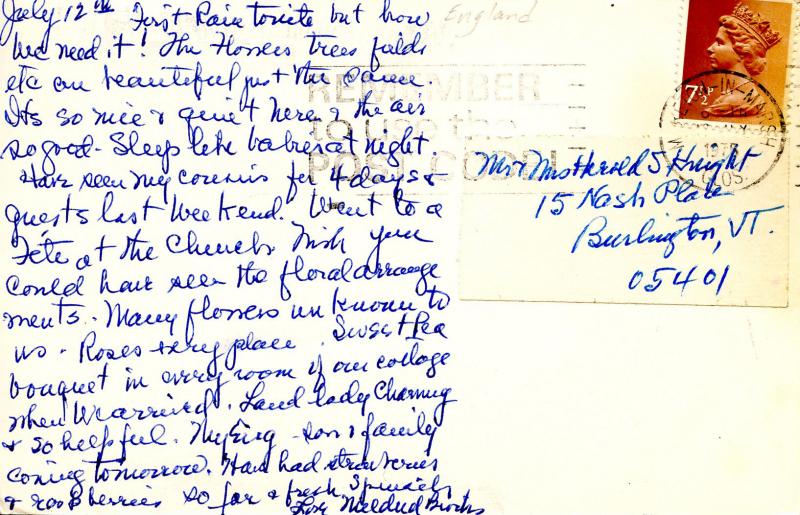 July 12th First Rain tonite but how
we need it! The Flowers trees fields
etc are beautiful just the same.
Its so nice & quiet here & the air
so good - Sleep like babies at night.
Have seen my cousins for 4 days &
guests last weekend. Went to a
Fête at the Church. Wish you
could have seen the floral arrange
ments. Many flowers unknown to
us - Roses every place. Sweet Pea
bouquet in every room of our cottage
when we arrived. Land lady Charming
& so helpful. My Eng - son & family
coming tomorrow. Have had strawberries
& raspberries so far & fresh Spinach
Love Mildred
England
REMEMBER
to use the
POST CODE
7½P
IN-MARSH
GLOS.
Mr & Mrs Harold S Knight
15 Nash Place
Burlington, VT.
05401